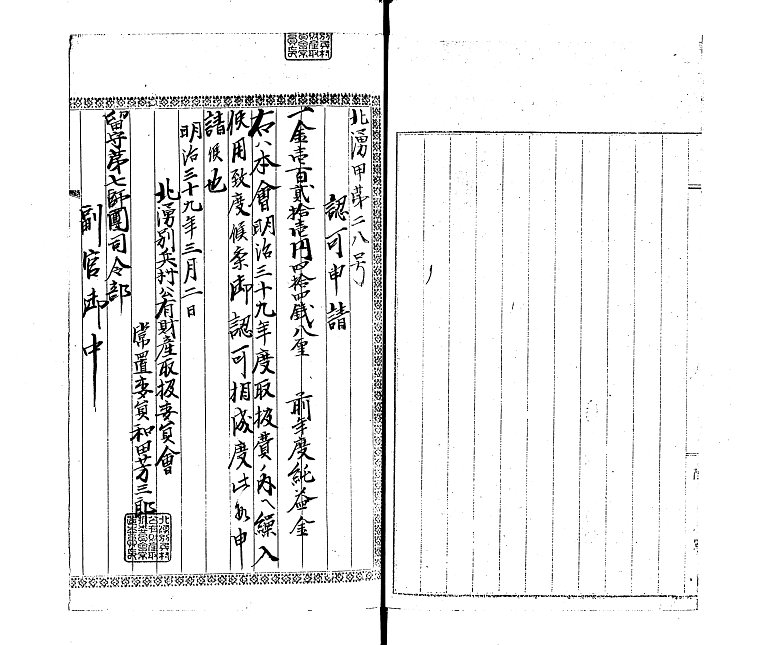 北湧甲第二八号
認可申請
一金壱百貳拾壱円四拾四銭八厘 前年度純益金
右ハ本會明治三十九年度取扱費ノ内ヘ繰入
使用致度候条御認可相成度此段申
請候也
明治三十九年三月二日
北湧別兵村公有財産取扱委員會
常置委員和田芳三郎
留守第七師團司令部
副官御中